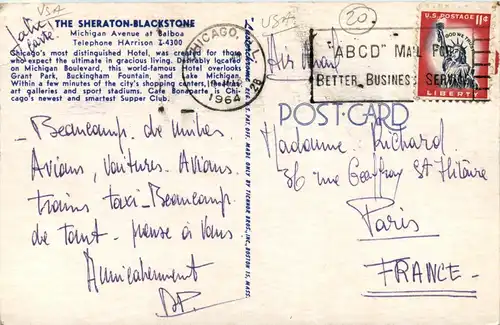 USA
USA
20
THE SHERATON-BLACKSTONE
Michigan Avenue at Balboa
Telephone HArrison 7-4300
Chicago's most distinguished Hotel, was created for those
who expect the ultimate in gracious living. Desirably located
on Michigan Boulevard, this world-famous Hotel overlooks
Grant Park, Buckingham Fountain, and Lake Michigan.
Within a few minutes of the city's shopping centers, theatres,
art galleries and sport stadiums. Cafe Bonaparte is Chi-
cago's newest and smartest Supper Club.
CHICAGO, IL
1964
"ABCD" MAIL FOR
BETTER BUSINESS SERVICE
U.S. POSTAGE 11¢
IN GOD WE TRUST
LIBERTY
Air Mail
POST CARD
MADE ONLY BY TICHNOR BROS., INC., BOSTON 15, MASS.
Beaucoup de
Avions, Voitures. Avions.
trains taxi - Beaucoup
de tout - pense à Vous
Amicalement
Madame Richard
36 rue Geoffroy St Hilaire
Paris
FRANCE